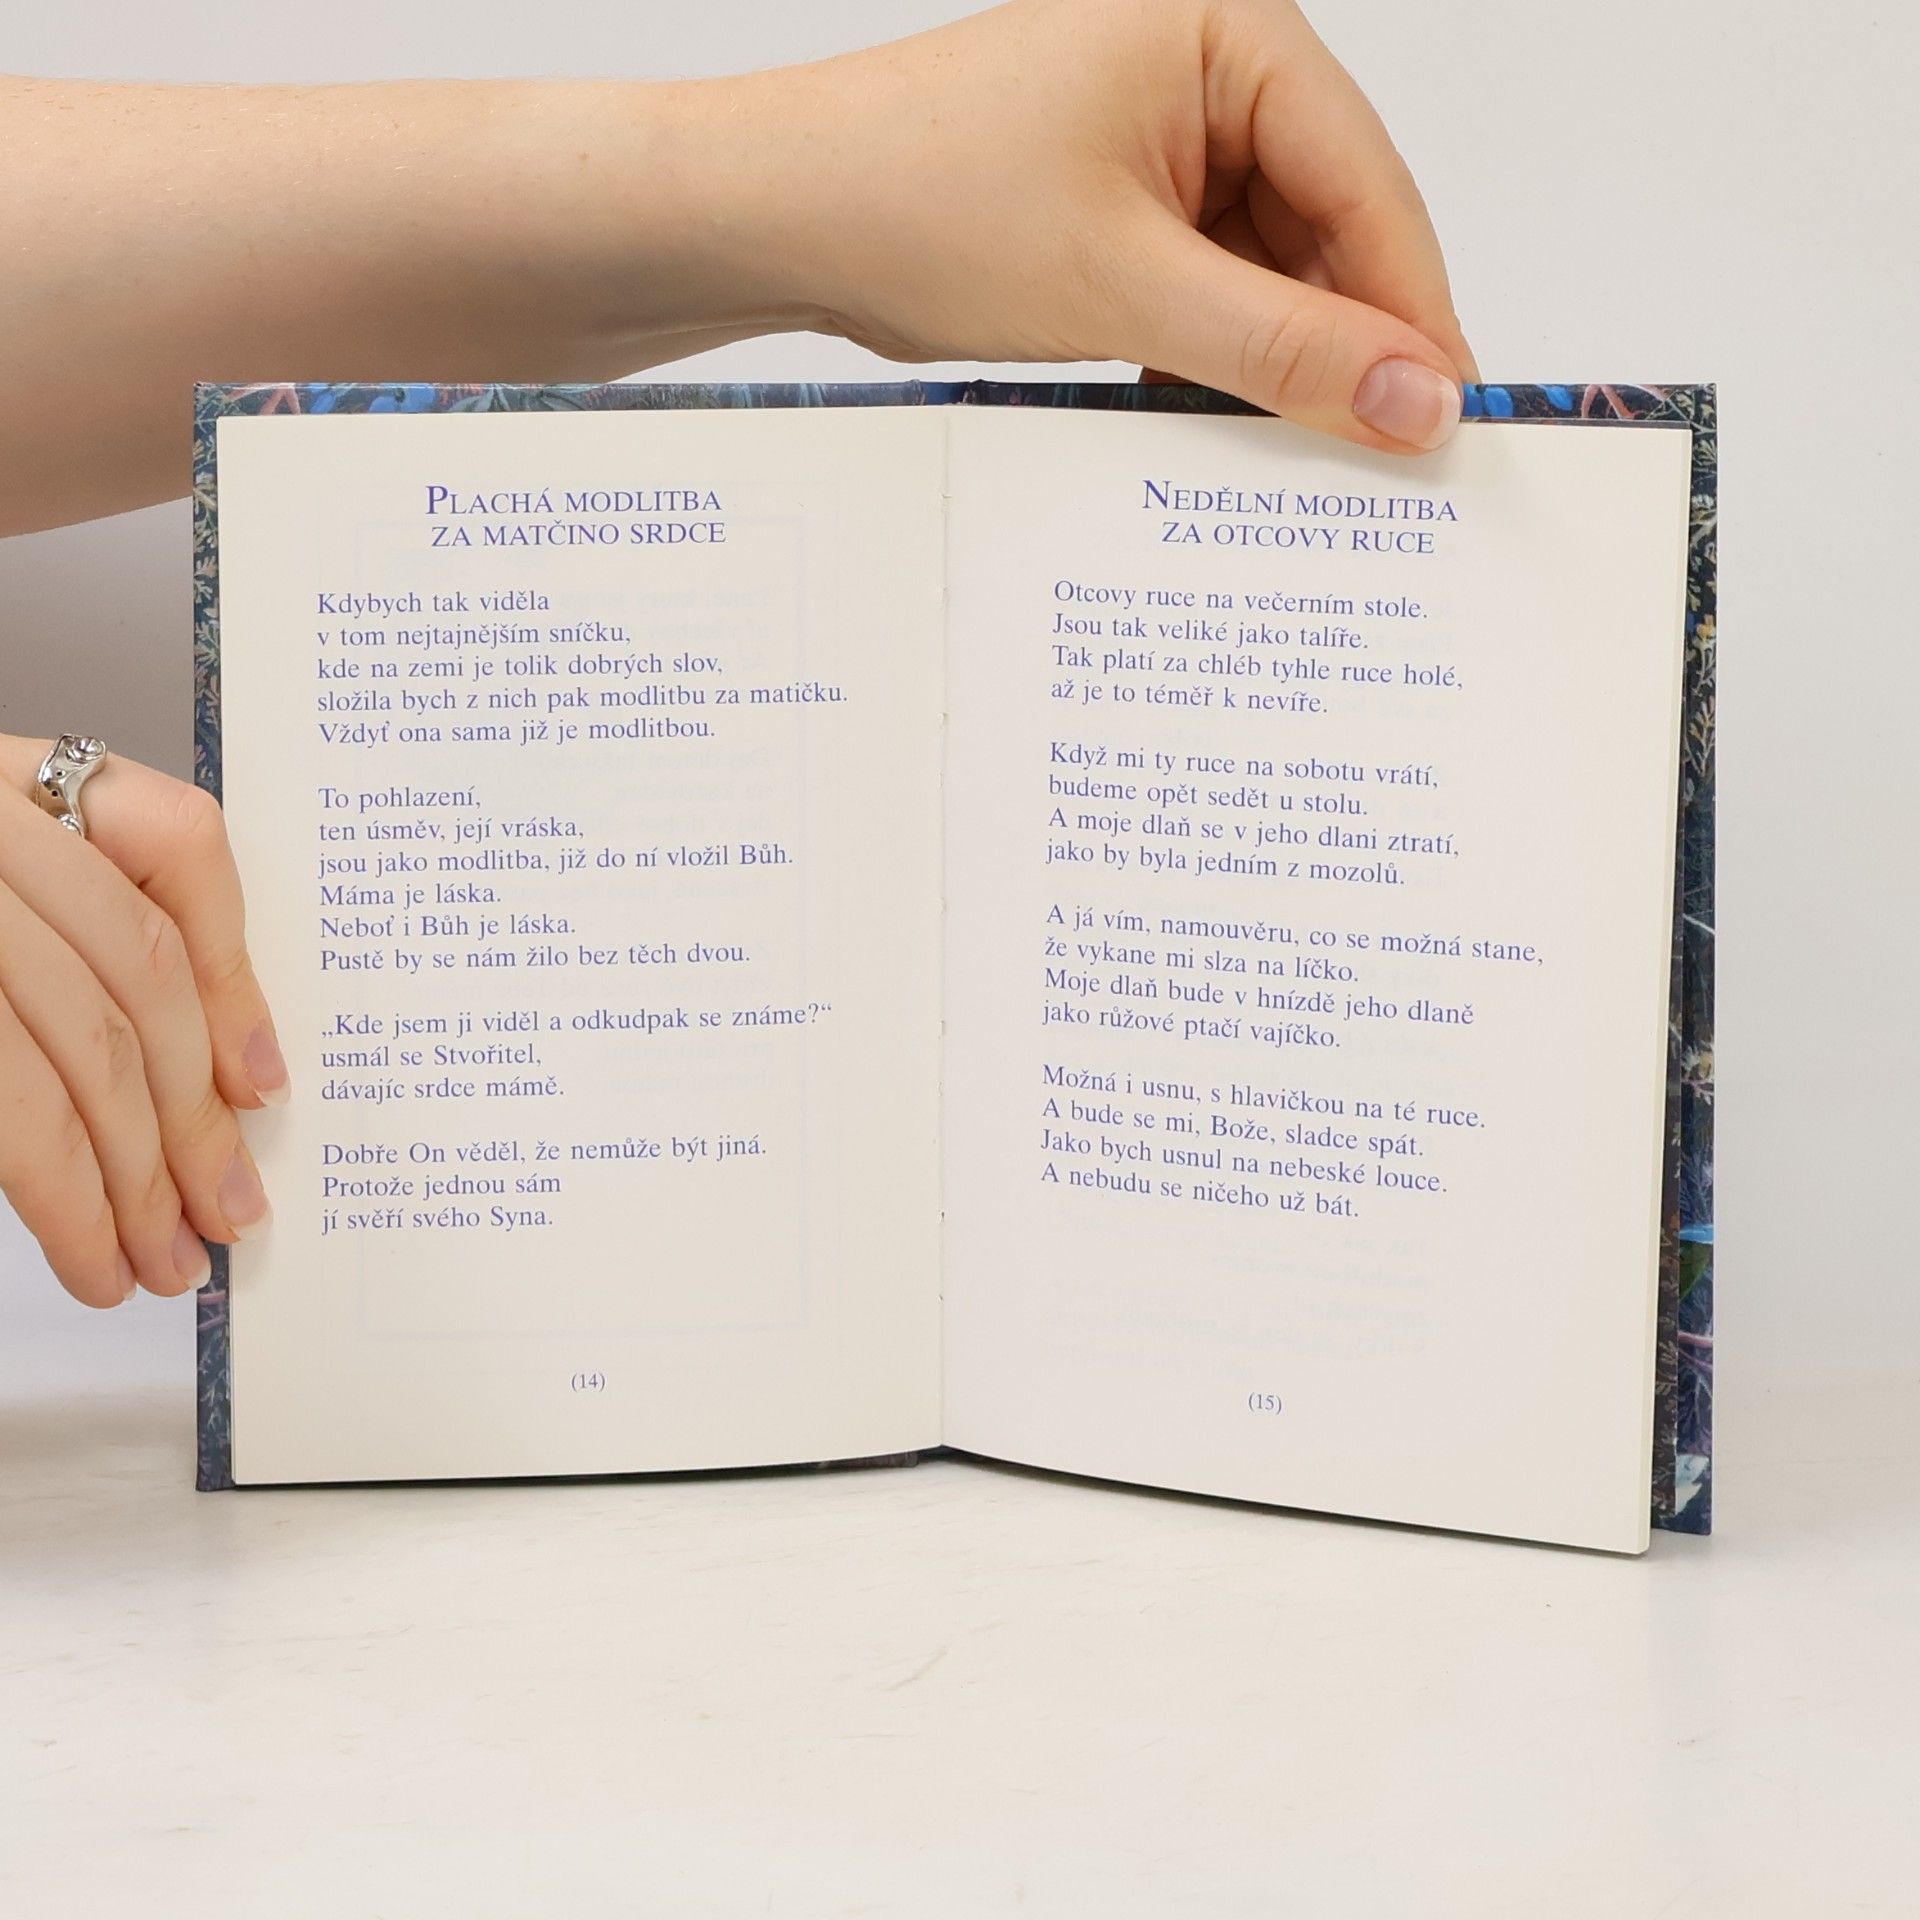 PLACHÁ MODLITBA
ZA MATČINO SRDCE
Kdybych tak viděla
v tom nejtajnějším sníčku,
kde na zemi je tolik dobrých slov,
složila bych z nich pak modlitbu za matičku.
Vždyť ona sama již je modlitbou.
To pohlazení,
ten úsměv, její vráska,
jsou jako modlitba, již do ní vložil Bůh.
Máma je láska.
Neboť i Bůh je láska.
Pustě by se nám žilo bez těch dvou.
„Kde jsem ji viděl a odkudpak se známe?“
usmál se Stvořitel,
dávajíc srdce mámě.
Dobře On věděl, že nemůže být jiná.
Protože jednou sám
jí svěří svého Syna.
(14)
NEDĚLNÍ MODLITBA
ZA OTCOVY RUCE
Otcovy ruce na večerním stole.
Jsou tak veliké jako talíře.
Tak platí za chléb tyhle ruce holé,
až je to téměř k nevíře.
Když mi ty ruce na sobotu vrátí,
budeme opět sedět u stolu.
A moje dlaň se v jeho dlani ztratí,
jako by byla jedním z mozolů.
A já vím, namouvěru, co se možná stane,
že vykane mi slza na líčko.
Moje dlaň bude v hnízdě jeho dlaně
jako růžové ptačí vajíčko.
Možná i usnu, s hlavičkou na té ruce.
A bude se mi, Bože, sladce spát.
Jako bych usnul na nebeské louce.
A nebudu se ničeho už bát.
(15)